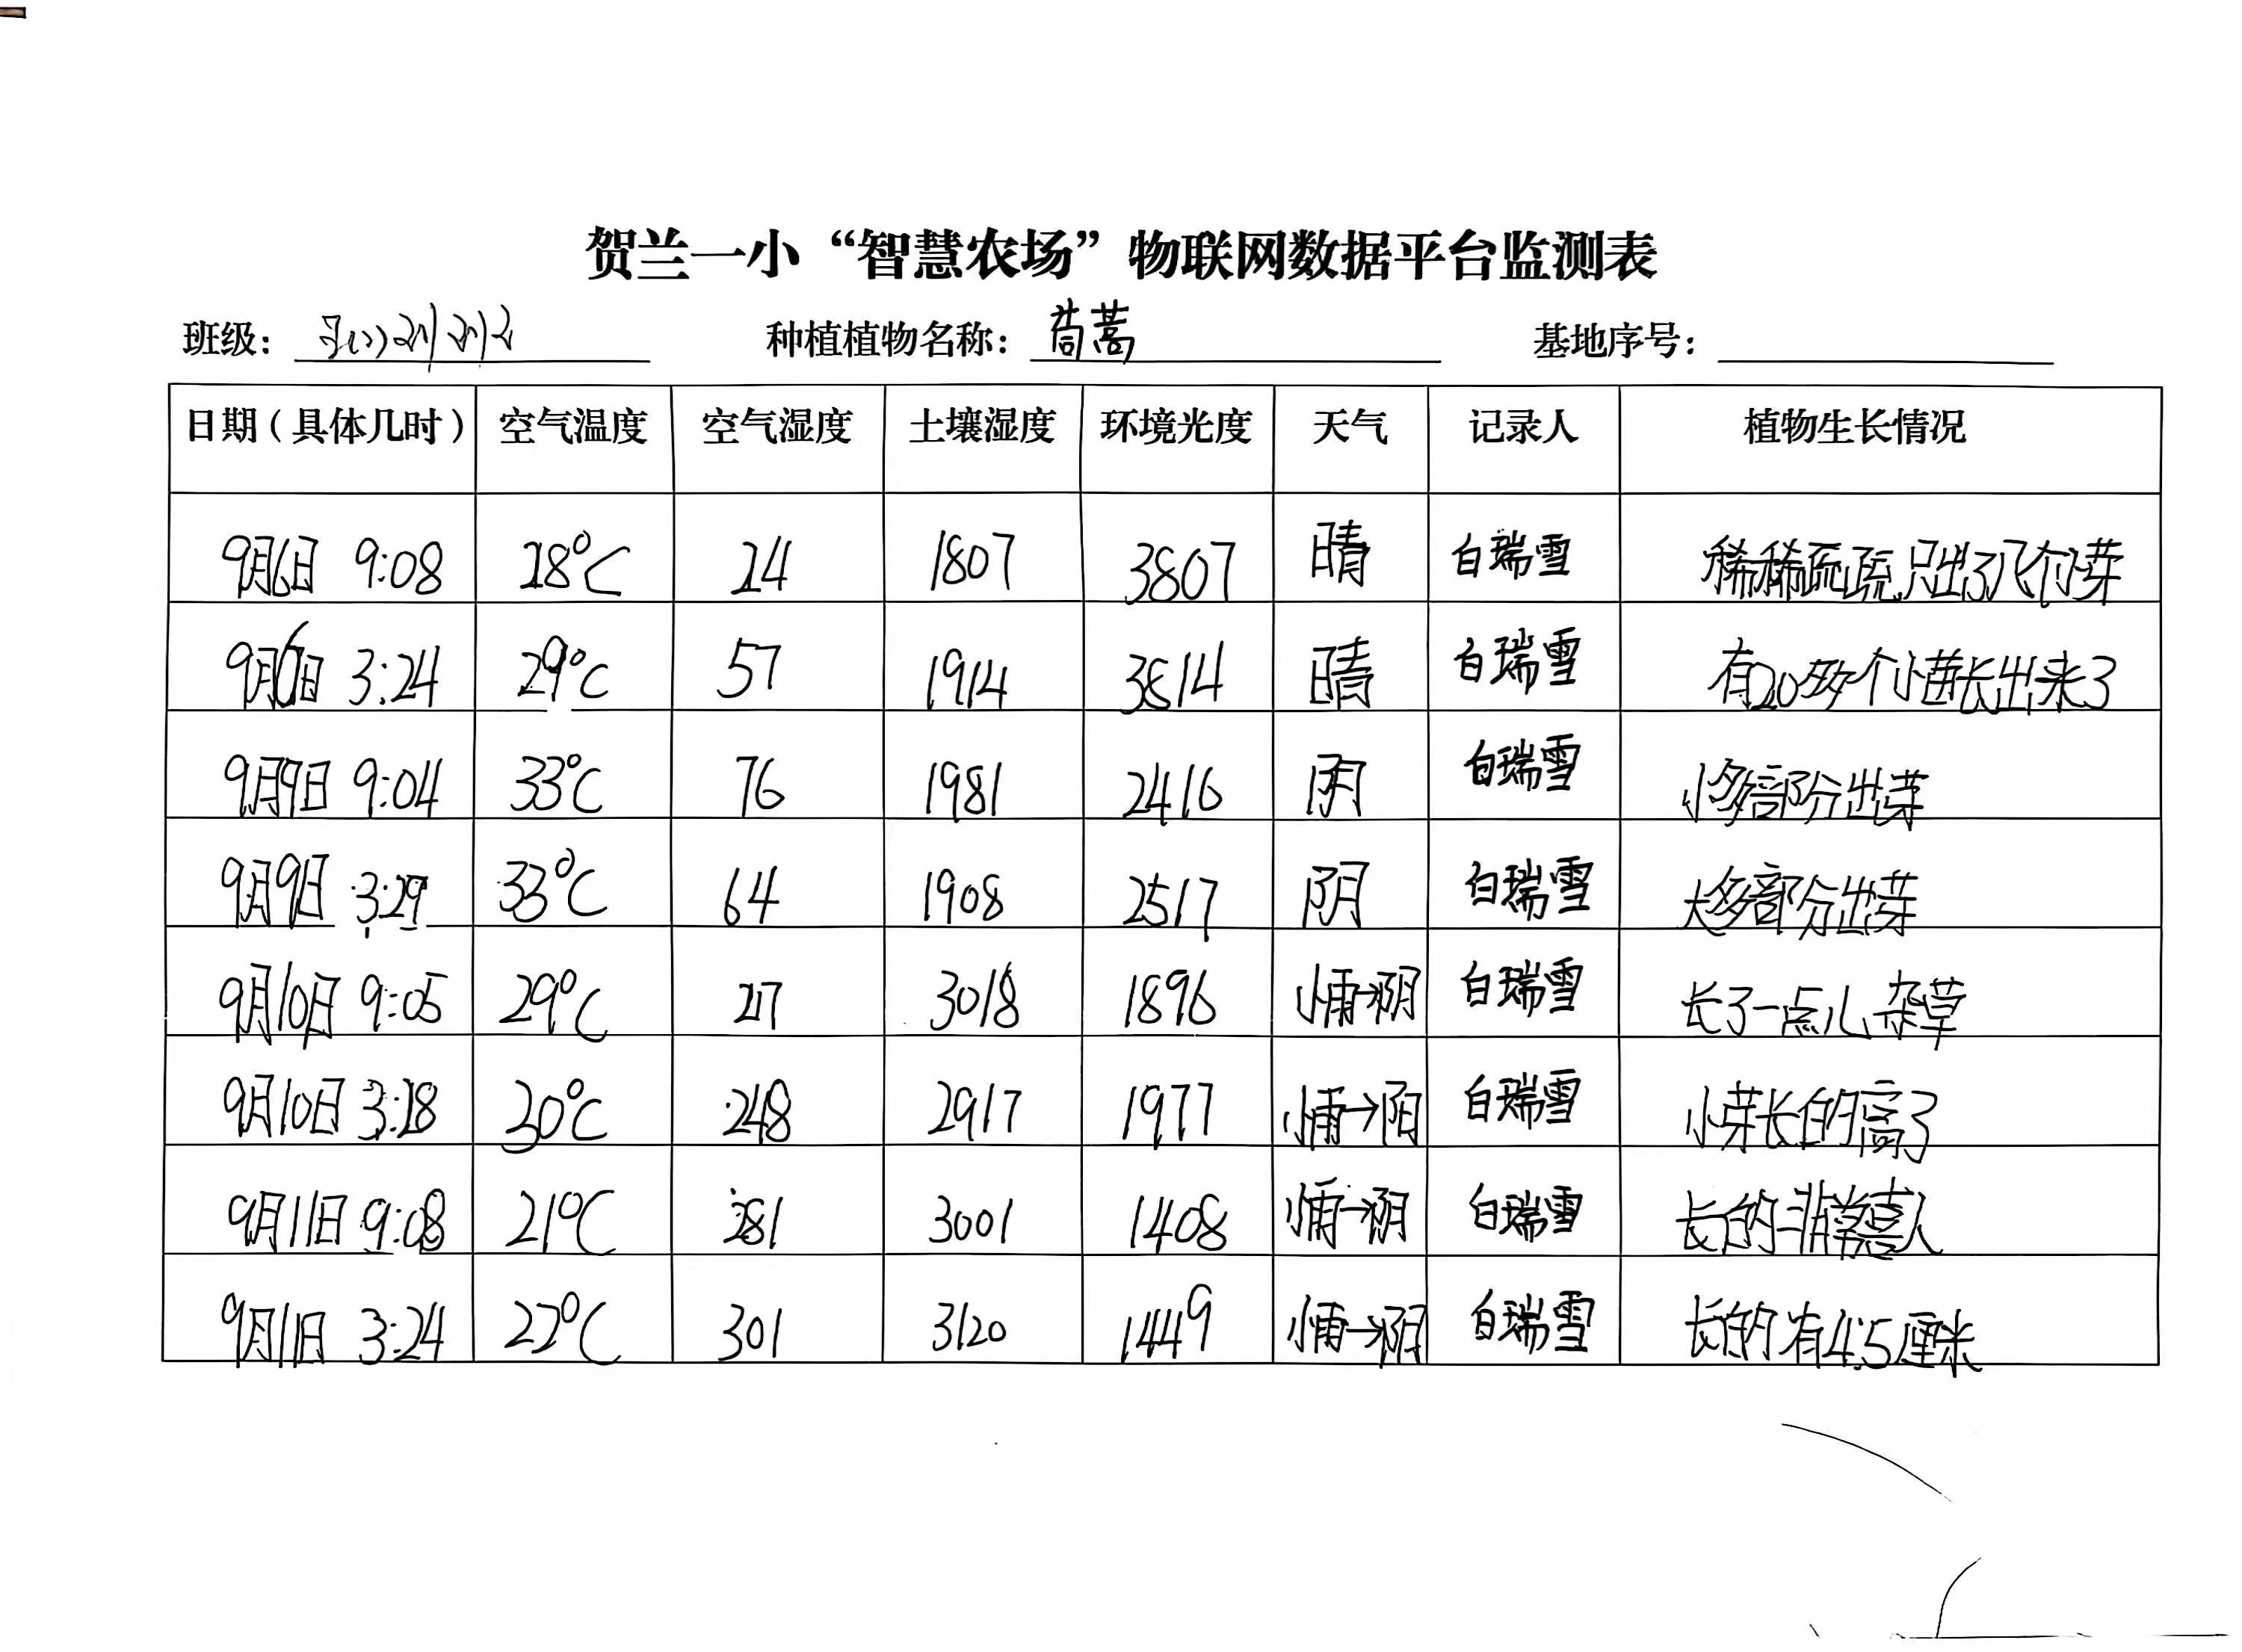 贺兰一小“智慧农场”物联网数据平台监测表
班级： 种植植物名称：茼蒿 基地序号：
日期（具体几时） 空气温度 空气湿度 土壤湿度 环境光度 天气 记录人 植物生长情况
9月6日 9:08 28℃ 24 1807 3807 晴 白瑞雪 稀稀疏疏,只出了几个小芽
9月6日 3:24 29℃ 57 1914 3814 晴 白瑞雪 有20多个小苗长出来了
9月9日 9:04 33℃ 76 1981 2416 阴 白瑞雪 小多部分出芽
9月9日 3:29 33℃ 64 1908 2517 阴 白瑞雪 大多部分出芽
9月10日 9:05 29℃ 217 3018 1896 小雨→阴 白瑞雪 长了一点儿杂草
9月10日 3:18 30℃ 248 2917 1977 小雨→阳 白瑞雪 小芽长的高了
9月11日 9:08 21℃ 281 3001 1408 小雨→阴 白瑞雪 长的非常喜人
9月11日 3:24 22℃ 301 3120 1449 小雨→阳 白瑞雪 长的有4.5厘米